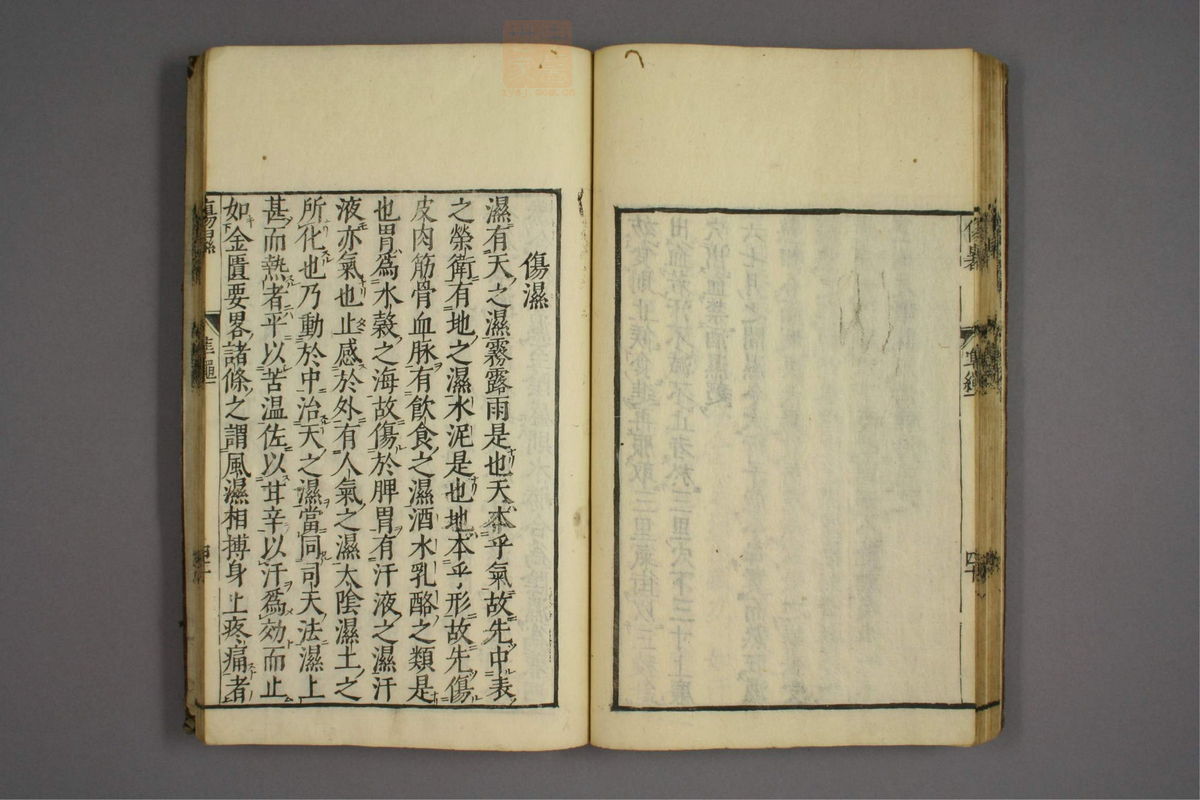 傷暑
四十
傷濕
濕有天之濕霧露雨是也天本乎氣故先中表
之榮衛有地之濕水泥是也地本乎形故先傷
皮肉筋骨血脉有飲食之濕酒水乳酪之類是
也胃爲水糓之海故傷於脾胃有汗液之濕汗
液亦氣也止感於外有人氣之濕太陰濕土之
所化也乃動於中治天之濕當同司天法濕上
甚而熱者平以苦温佐以甘辛以汗爲効而止
如金匱要畧諸條之謂風濕相搏身上疼痛者
傷濕